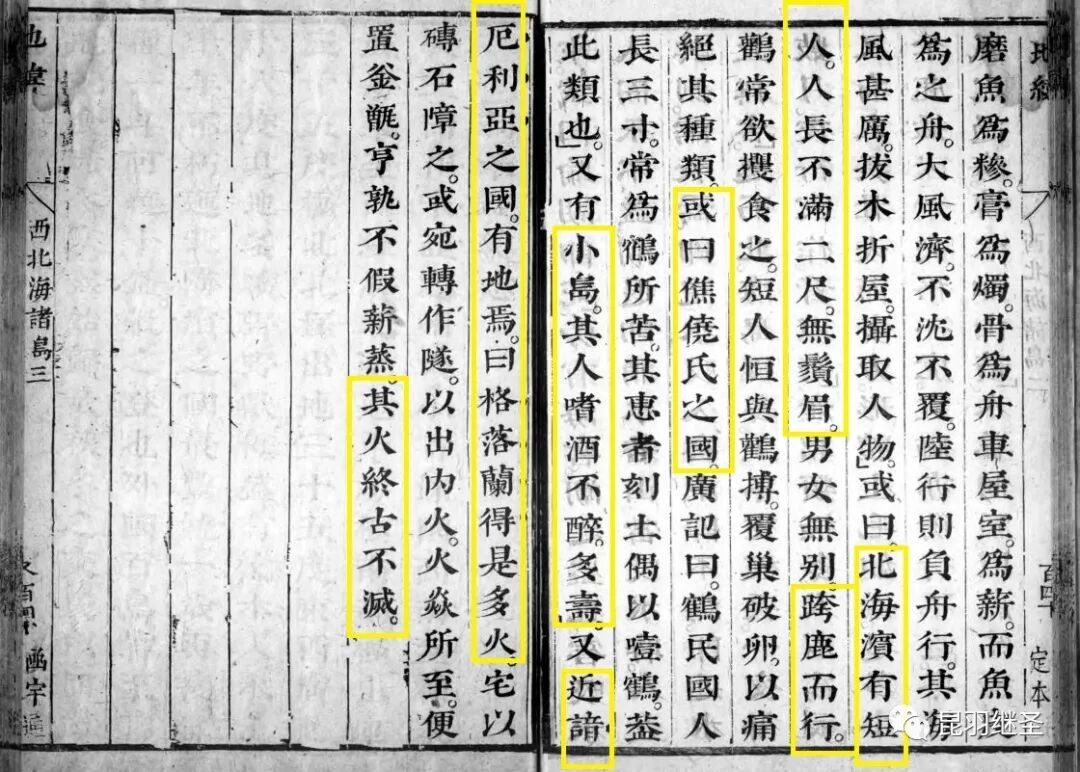 地緯
百四十
定本
磨魚爲糝。膏爲燭。骨爲舟車屋室。爲薪。而魚皮
爲之舟。大風濟。不沈不覆。陸行則負舟行。其海
風甚厲。拔木折屋。攝取人物。或曰。北海濱有短
人。人長不滿二尺。無鬚眉。男女無別。跨鹿而行。
鸛常欲攫食之。短人恒與鸛搏。覆巢破卵。以痛
絕其種類。或曰僬僥氏之國。廣記曰。鶴民國人
長三寸。常爲鶴所苦。其惠者刻土偶以噎鶴。葢
此類也。又有小島。其人嗜酒不醉。多壽。又近諳
厄利亞之國。有地焉。曰格落蘭得是多火。宅以
磚石障之。或宛轉作隧。以出内火。火焱所至。便
置釜甑。亨孰不假薪蒸。其火終古不滅。
地緯
西北海諸島三
函宇通
昆羽继圣